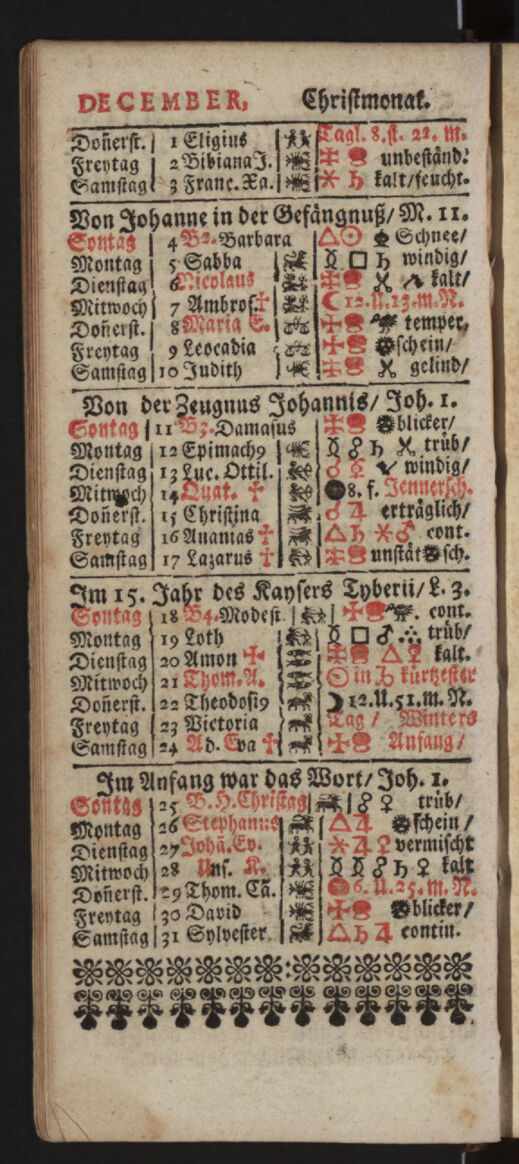 DECEMBER, Christmonat.
Doñerst. 1 Eligius Tagl. 8. st. 22. m.
Freytag 2 Bibiana J. unbeständ:
Samstag 3 Franc. Xa. ⚹ ♄ kalt/feucht.
Von Johanne in der Gefängnuß/ M. 11.
Sontag 4 B2. Barbara △☉ Schnee/
Montag 5 Sabba ☿ □ ♄ windig/
Dienstag 6 Nicolaus kalt/
Mitwoch 7 Ambros. ☾ 12. U. 13. m. N.
Doñerst. 8 Maria E. temper,
Freytag 9 Leocadia schein/
Samstag 10 Judith gelind/
Von der Zeugnus Johannis/ Joh. 1.
Sontag 11 B3. Damasus blicker/
Montag 12 Epimach9 ☿ ☍ ♄ trüb/
Dienstag 13 Luc. Ottil. ♂ ♀ windig/
Mitwoch 14 Quat. 8. f. Jennersch.
Doñerst. 15 Christina ☌ ♃ erträglich/
Freytag 16 Ananias △♄ ⚹♂ cont.
Samstag 17 Lazarus unstät sch.
Im 15. Jahr des Kaysers Tyberii/ L. 3.
Sontag 18 B4. Modest. cont.
Montag 19 Loth ☿ □ ♂ trüb/
Dienstag 20 Amon △♀ kalt.
Mitwoch 21 Thom. A. ☉ in ♄ kürtzester
Doñerst. 22 Theodosi9 ☽ 12. U. 51. m. N.
Freytag 23 Victoria Tag / Winters
Samstag 24 Ad. Eva Anfang/
Im Anfang war das Wort/ Joh. 1.
Sontag 25 B. H. Christag ☍ ♀ trüb/
Montag 26 Stephanus △♃ schein /
Dienstag 27 Johã. Ev. ⚹ ♃ ♀ vermischt
Mitwoch 28 Uns. K. ☿ ☍ ♄ ♀ kalt
Doñerst. 29 Thom. Cã. 6. U. 25. m. N.
Freytag 30 David blicker/
Samstag 31 Sylvester △♄ ♃ contin.